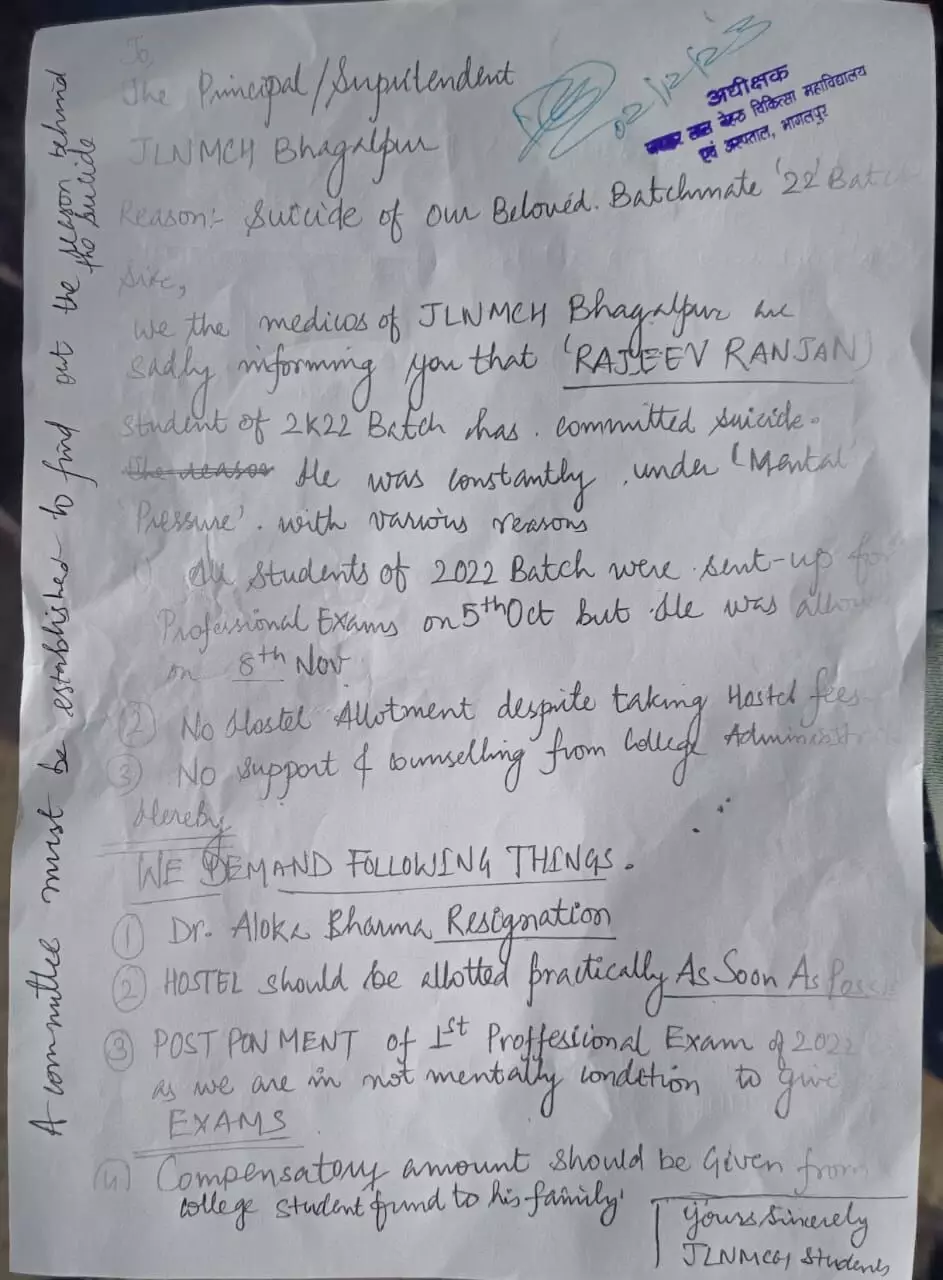 To,
The Principal/Supritendent
JLNMCH Bhagalpur
02/12/23
अधीक्षक
जवाहर लाल नेहरू चिकित्सा महाविद्यालय
एवं अस्पताल, भागलपुर
Reason:- Suicide of our Beloved. Batchmate '22' Batch
Sir,
We the medicos of JLNMCH Bhagalpur are
sadly informing you that 'RAJEEV RANJAN)
student of 2K22 Batch has. committed suicide.
The reason He was constantly, under 'Mental
Pressure'. with various reasons
1) All students of 2022 Batch were sent-up for
Professional Exams on 5th Oct but He was allow
on 8th Nov
(2) No Hostel Allotment despite taking Hostel fees
(3) No support & counselling from College Administr
Hereby
WE DEMAND FOLLOWING THINGS.
(1) Dr. Aloka Bharma Resignation
(2) HOSTEL should be allotted practically As Soon As Poss
(3) POST PONMENT of 1st Proffessional Exam of 2022
as we are in not mentally condition to give
EXAMS
(4) Compensatory amount should be Given from
college student fund to his family'
Yours Sincerely
JLNMCH Students
A committee must be established to find out the reason behind
the suicide